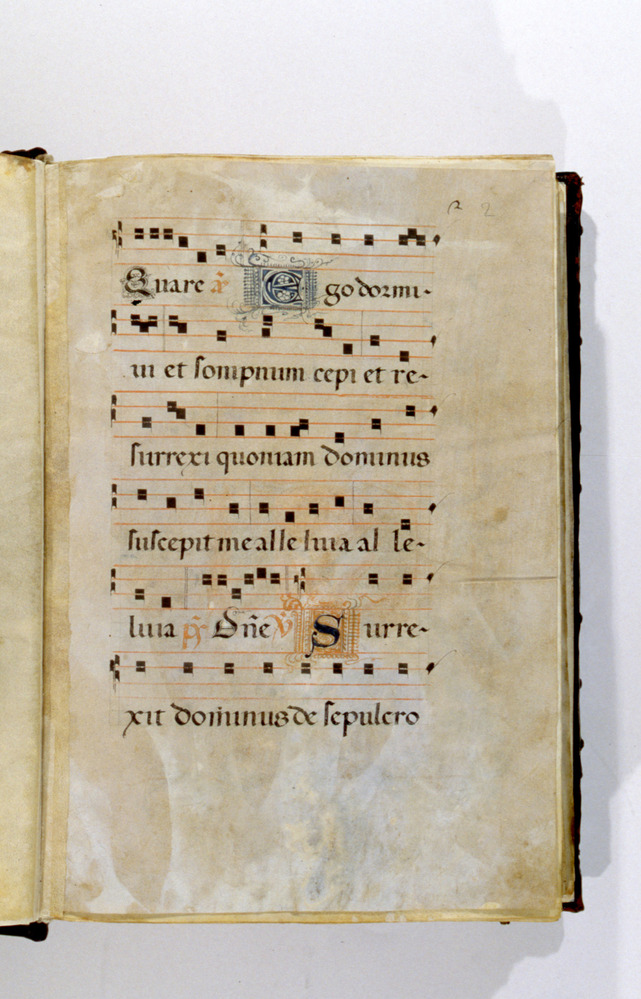 2
Quare a̅ Ego dormi-
ui et sompnum cepi et re-
surrexi quoniam dominus
suscepit me alleluia al le-
luia p̅s Dn̅e ℣ Surre-
xit dominus de sepulcro